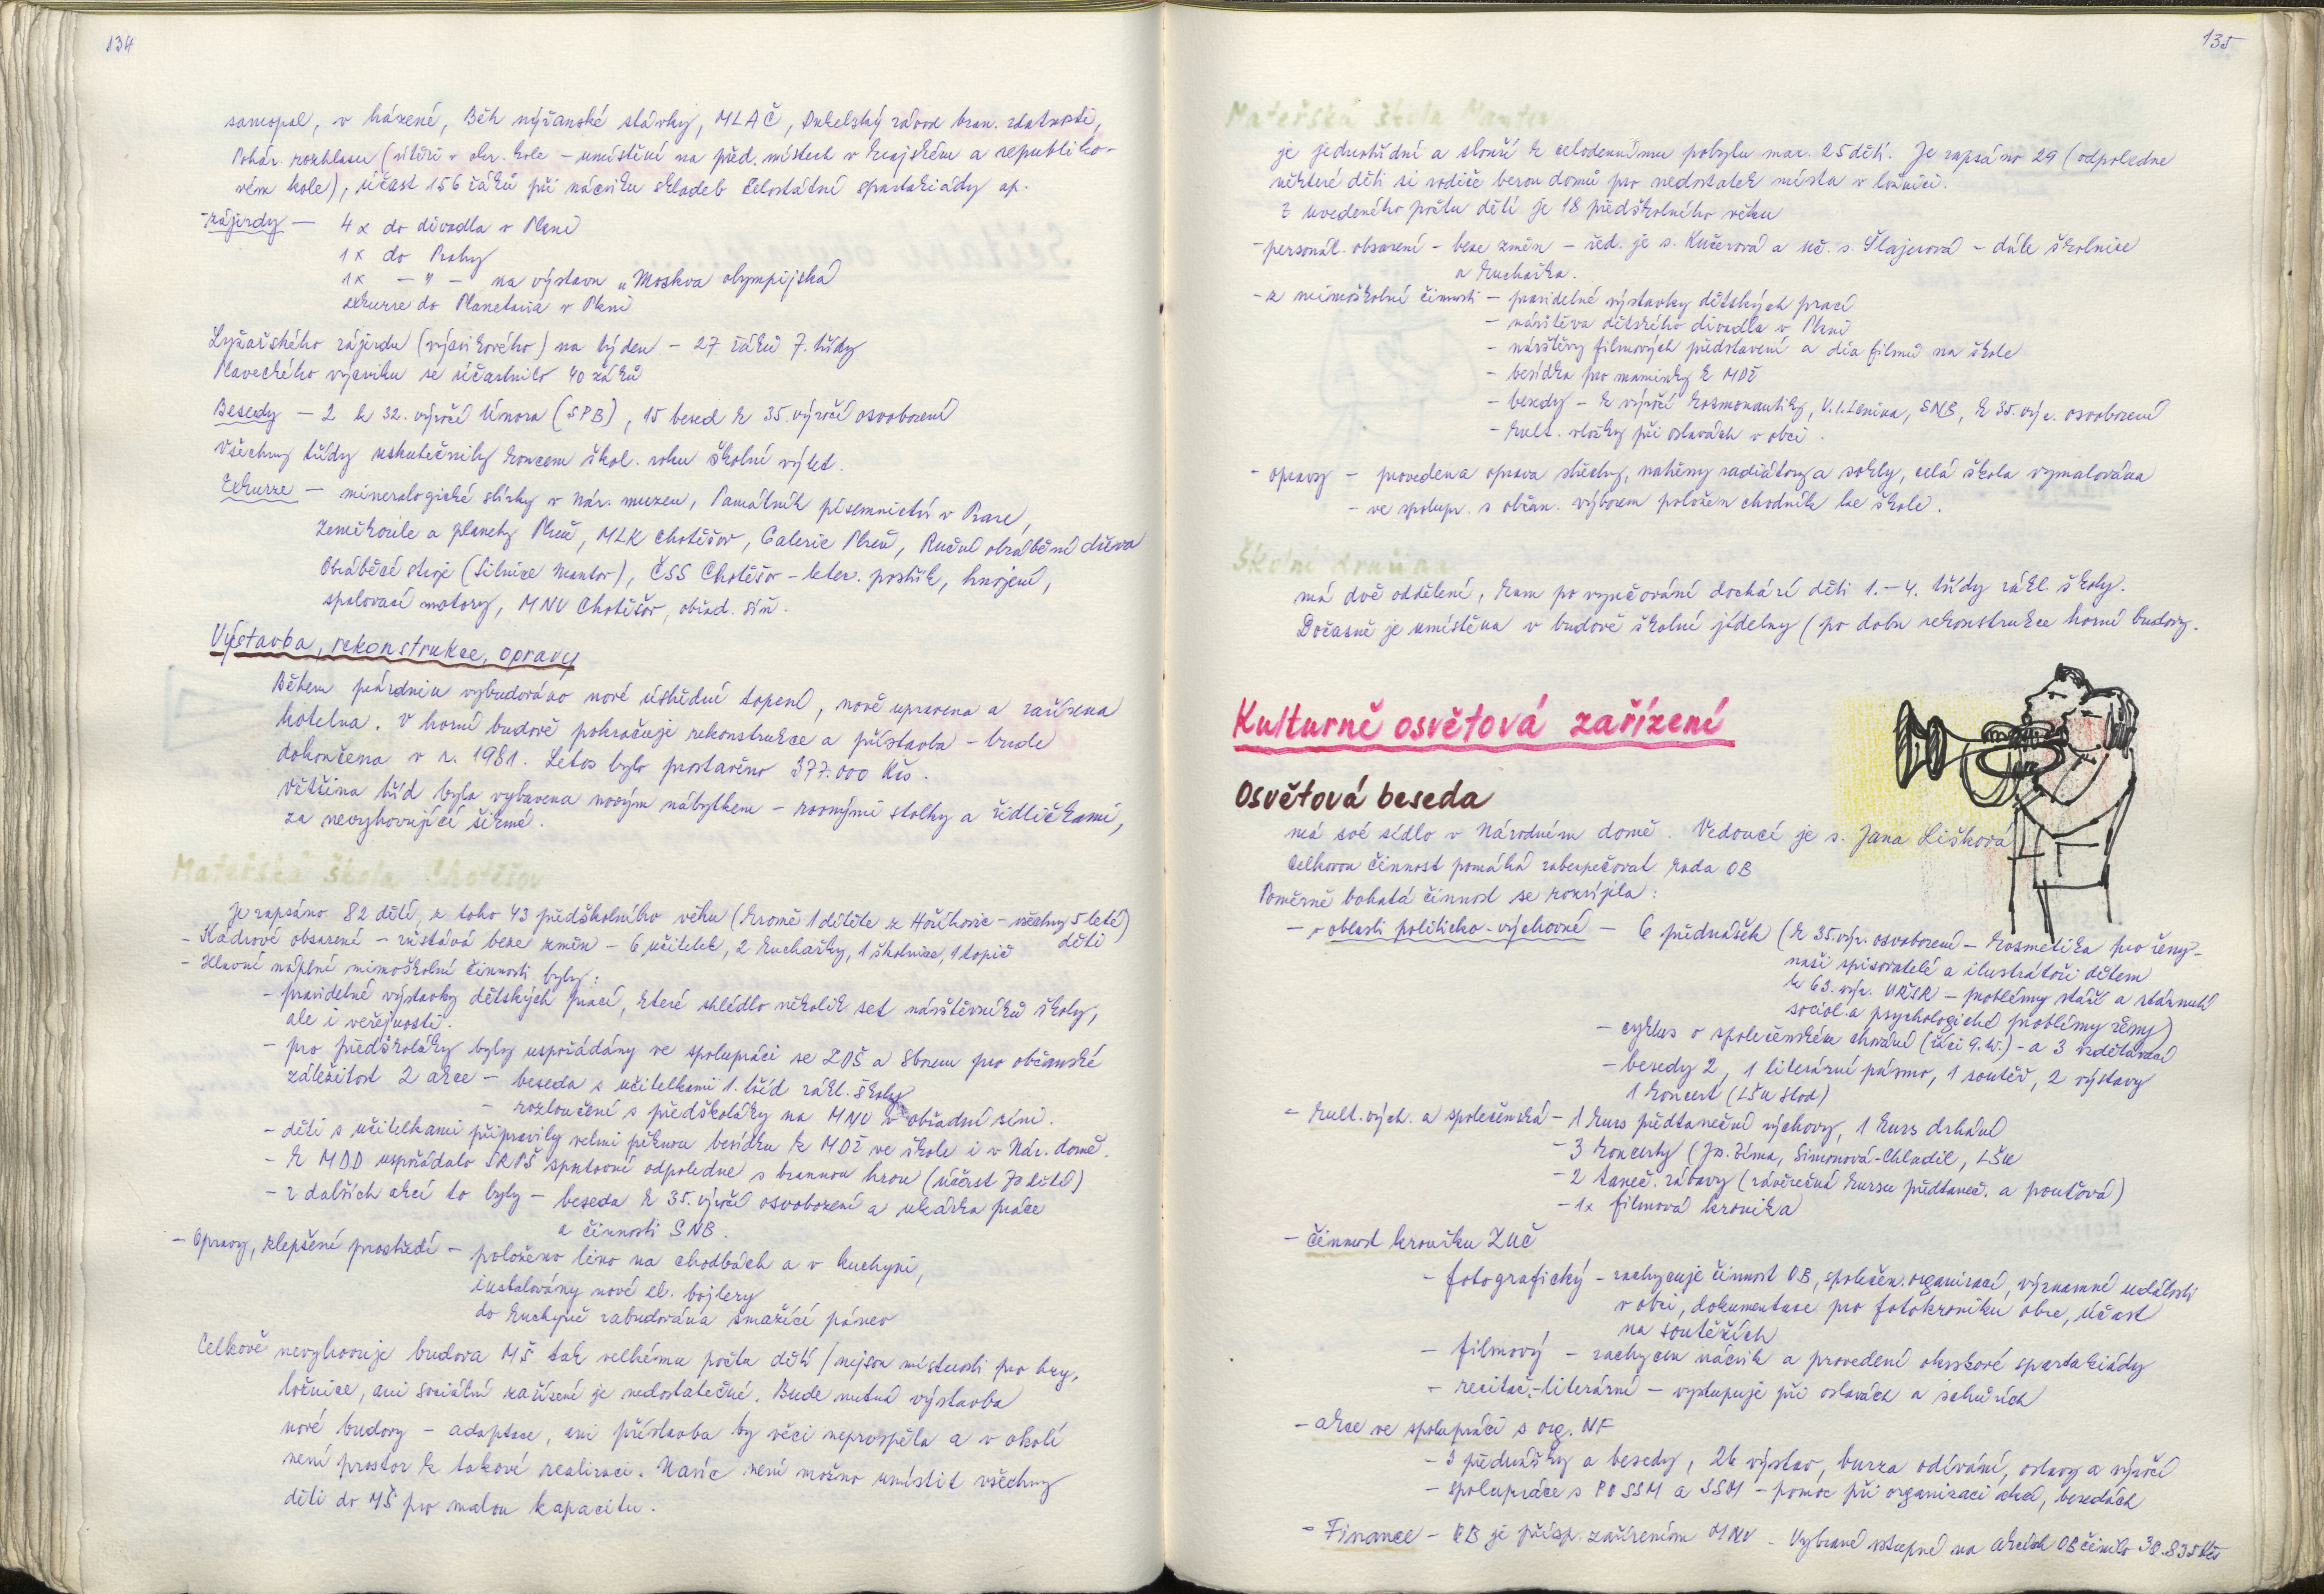 134
samopal, v házené, Běh nýřanské stávky, MLAČ, Dukelský závod bran. zdatnosti,
Pohár rozhlasu (vítězi v okr. kole – umístění na před. místech v krajském a republiko-
vém kole), účast 156 žáků při nácviku skladeb celostátní spartakiády ap.
- zájezdy – 4 x do divadla v Plzni
1 x do Prahy
1 x – " – na výstavu „Moskva olympijská
exkurze do Planetaria v Plzni
Lyžařského zájezdu (výcvikového) na týden – 27 žáků 7. třídy
Plaveckého výcviku se účastnilo 40 žáků
Besedy – 2 k 32. výročí Února (SPB), 15 besed k 35. výročí osvobození
Všechny třídy uskutečnily koncem škol. roku školní výlet.
Exkurze – mineralogické sbírky v Nár. muzeu, Památník písemnictví v Praze,
Zeměkoule a planety Plzeň, MLK Chotěšov, Galerie Plzeň, Ruční obrábění dřeva
Obráběcí stroje (Silnice Mantov), ČSS Chotěšov – letec. postřik, hnojení,
spalovací motory, MNV Chotěšov, obřad. síň.
Výstavba, rekonstrukce, opravy
Během prázdnin vybudováno nové ústřední topení, nově upravena a zařízena
kotelna. V horní budově pokračuje rekonstrukce a přístavba – bude
dokončena v r. 1981. Letos bylo prostavěno 377.000 Kčs.
Většina tříd byla vybavena novým nábytkem – rovnými stolky a židličkami,
za nevyhovující šikmé.
Mateřská škola Chotěšov
Je zapsáno 82 dětí, z toho 43 předškolního věku (kromě 1 dítěte z Hoříkovic – všechny 5 leté)
děti
- Kádrové obsazení – zůstává beze změn – 6 učitelek, 2 kuchařky, 1 školnice, 1 topič
- Hlavní náplní mimoškolní činnosti byly:
- pravidelné výstavky dětských prací, které shlédlo několik set návštěvníků školy,
ale i veřejnosti.
- pro předškoláky byly uspořádány ve spolupráci se ZDŠ a Sborem pro občanské
záležitosti 2 akce – beseda s učitelkami 1. tříd zákl. školy
– rozloučení s předškoláky na MNV v obřadní síni.
- děti s učitelkami připravily velmi pěknou besídku k MDŽ ve škole i v Nár. domě.
- k MDD uspořádalo SRPŠ sportovní odpoledne s brannou hrou (účast 70 dětí)
- z dalších akcí to byly – beseda k 35. výročí osvobození a ukázka práce
a činnosti SNB.
- Opravy, zlepšení prostředí – položeno lino na chodbách a v kuchyni,
instalovány nové el. bojlery
do kuchyně zabudována smažící pánev
Celkově nevyhovuje budova MŠ tak velkému počtu dětí (nejsou místnosti pro hry,
ložnice, ani sociální zařízení je nedostatečné. Bude nutná výstavba
nové budovy – adaptace, ani přístavba by věci neprospěla a v okolí
není prostor k takové realizaci. Navíc není možno umístit všechny
děti do MŠ pro malou kapacitu.
135
Mateřská škola Mantov
je jednotřídní a slouží k celodennímu pobytu max. 25 dětí. Je zapsáno 29 (odpoledne
některé děti si rodiče berou domů pro nedostatek místa v ložnici.
Z uvedeného počtu dětí je 18 předškolního věku
- personál. obsazení – beze změn – řed. je s. Kučerová a uč. s. Šlajerová – dále školnice
a kuchařka.
- z mimoškolní činnosti – pravidelné výstavky dětských prací
– návštěva dětského divadla v Plzni
– návštěvy filmových představení a dia filmů na škole
– besídka pro maminky k MDŽ
– besedy – k výročí kosmonautiky, V. I. Lenina, SNB, k 35. výr. osvobození
– kult. vložky při oslavách v obci.
- opravy – provedena oprava střechy, natřeny radiátory a sokly, celá škola vymalována
– ve spolupr. s občan. výborem položen chodník ke škole.
Školní družina
má dvě oddělení, kam po vyučování dochází děti 1.–4. třídy zákl. školy.
Dočasně je umístěna v budově školní jídelny (po dobu rekonstrukce horní budovy.
Kulturně osvětová zařízení
Osvětová beseda
má své sídlo v Národním domě. Vedoucí je s. Jana Lišková
Celkovou činnost pomáhá zabezpečovat Rada OB
Poměrně bohatá činnost se rozvíjela:
- v oblasti politicko-výchovné – 6 přednášek (k 35. výr. osvobození – kosmetika pro ženy –
naši spisovatelé a ilustrátoři dětem
k 63. výr. VŘSR – problémy stáří a stárnutí
sociol. a psychologické problémy ženy)
– cyklus o společenském chování (žáci 9. tř.) – a 3 vzdělávací
– besedy 2, 1 literární pásmo, 1 soutěž, 2 výstavy
1 koncert (LŠU Stod)
- kult. vých. a společenská – 1 kurs předtaneční výchovy, 1 kurs drhání
– 3 koncerty (Jos. Zíma, Simonová-Chladil, LŠU
– 2 taneč. zábavy (závěrečná kurzu předtaneč. a pouťová)
– 1x filmová kronika
- činnost kroužku ZUČ
- fotografický – zachycuje činnost OB, společen. organizací, významné události
v obci, dokumentace pro fotokroniku obce, účast
na soutěžích
- filmový – zachycen nácvik a provedení okrskové spartakiády
- recitač.-literární – vystupuje při oslavách a schůzích
- akce ve spolupráci s org. NF
- 3 přednášky a besedy, 26 výstav, burza odívání, oslavy a výročí
- spolupráce s PO SSM a SSM – pomoc při organizaci akcí, besedách
- Finance – OB je přísp. zařízením MNV – Vybrané vstupné na akcích OB činilo 30.835 Kčs